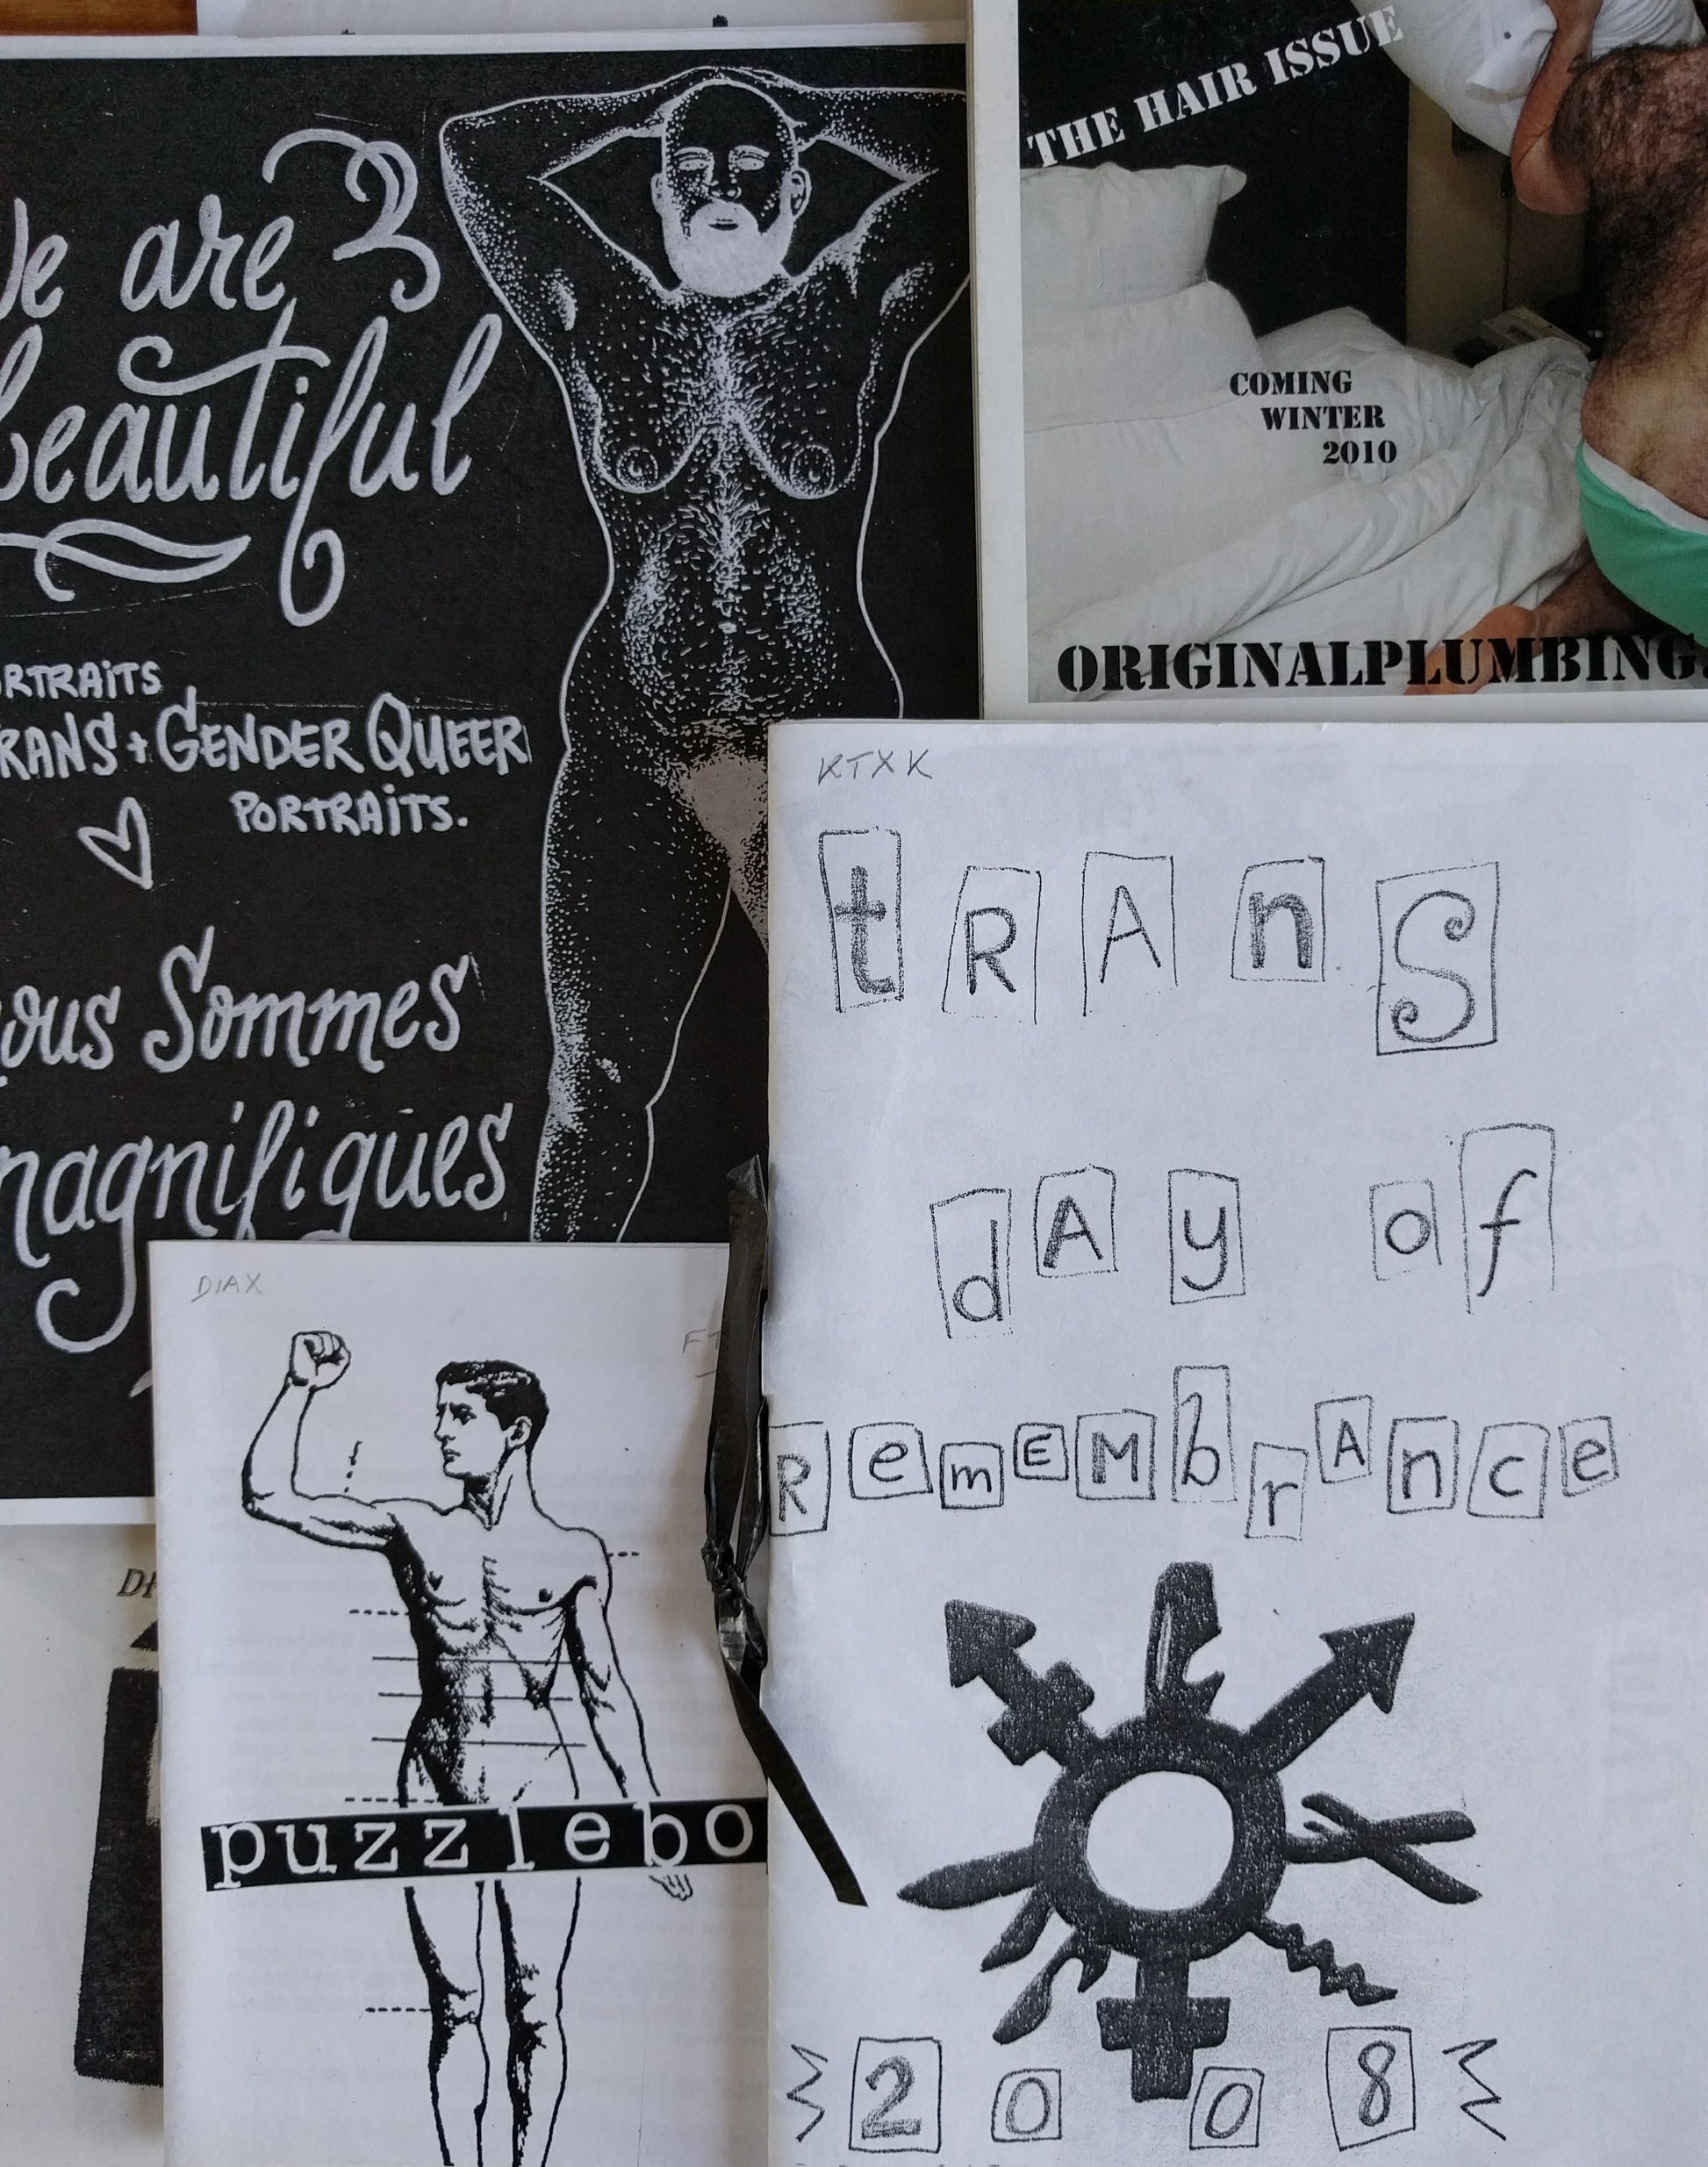 We are
beautiful
TRANS + GENDER QUEER
PORTRAITS.
Sommes
magnifiques
THE HAIR ISSUE
COMING
WINTER
2010
ORIGINALPLUMBING
KTXK
tRAnS
dAy of
RemEMbrAnce
2008
DIAX
puzzlebo